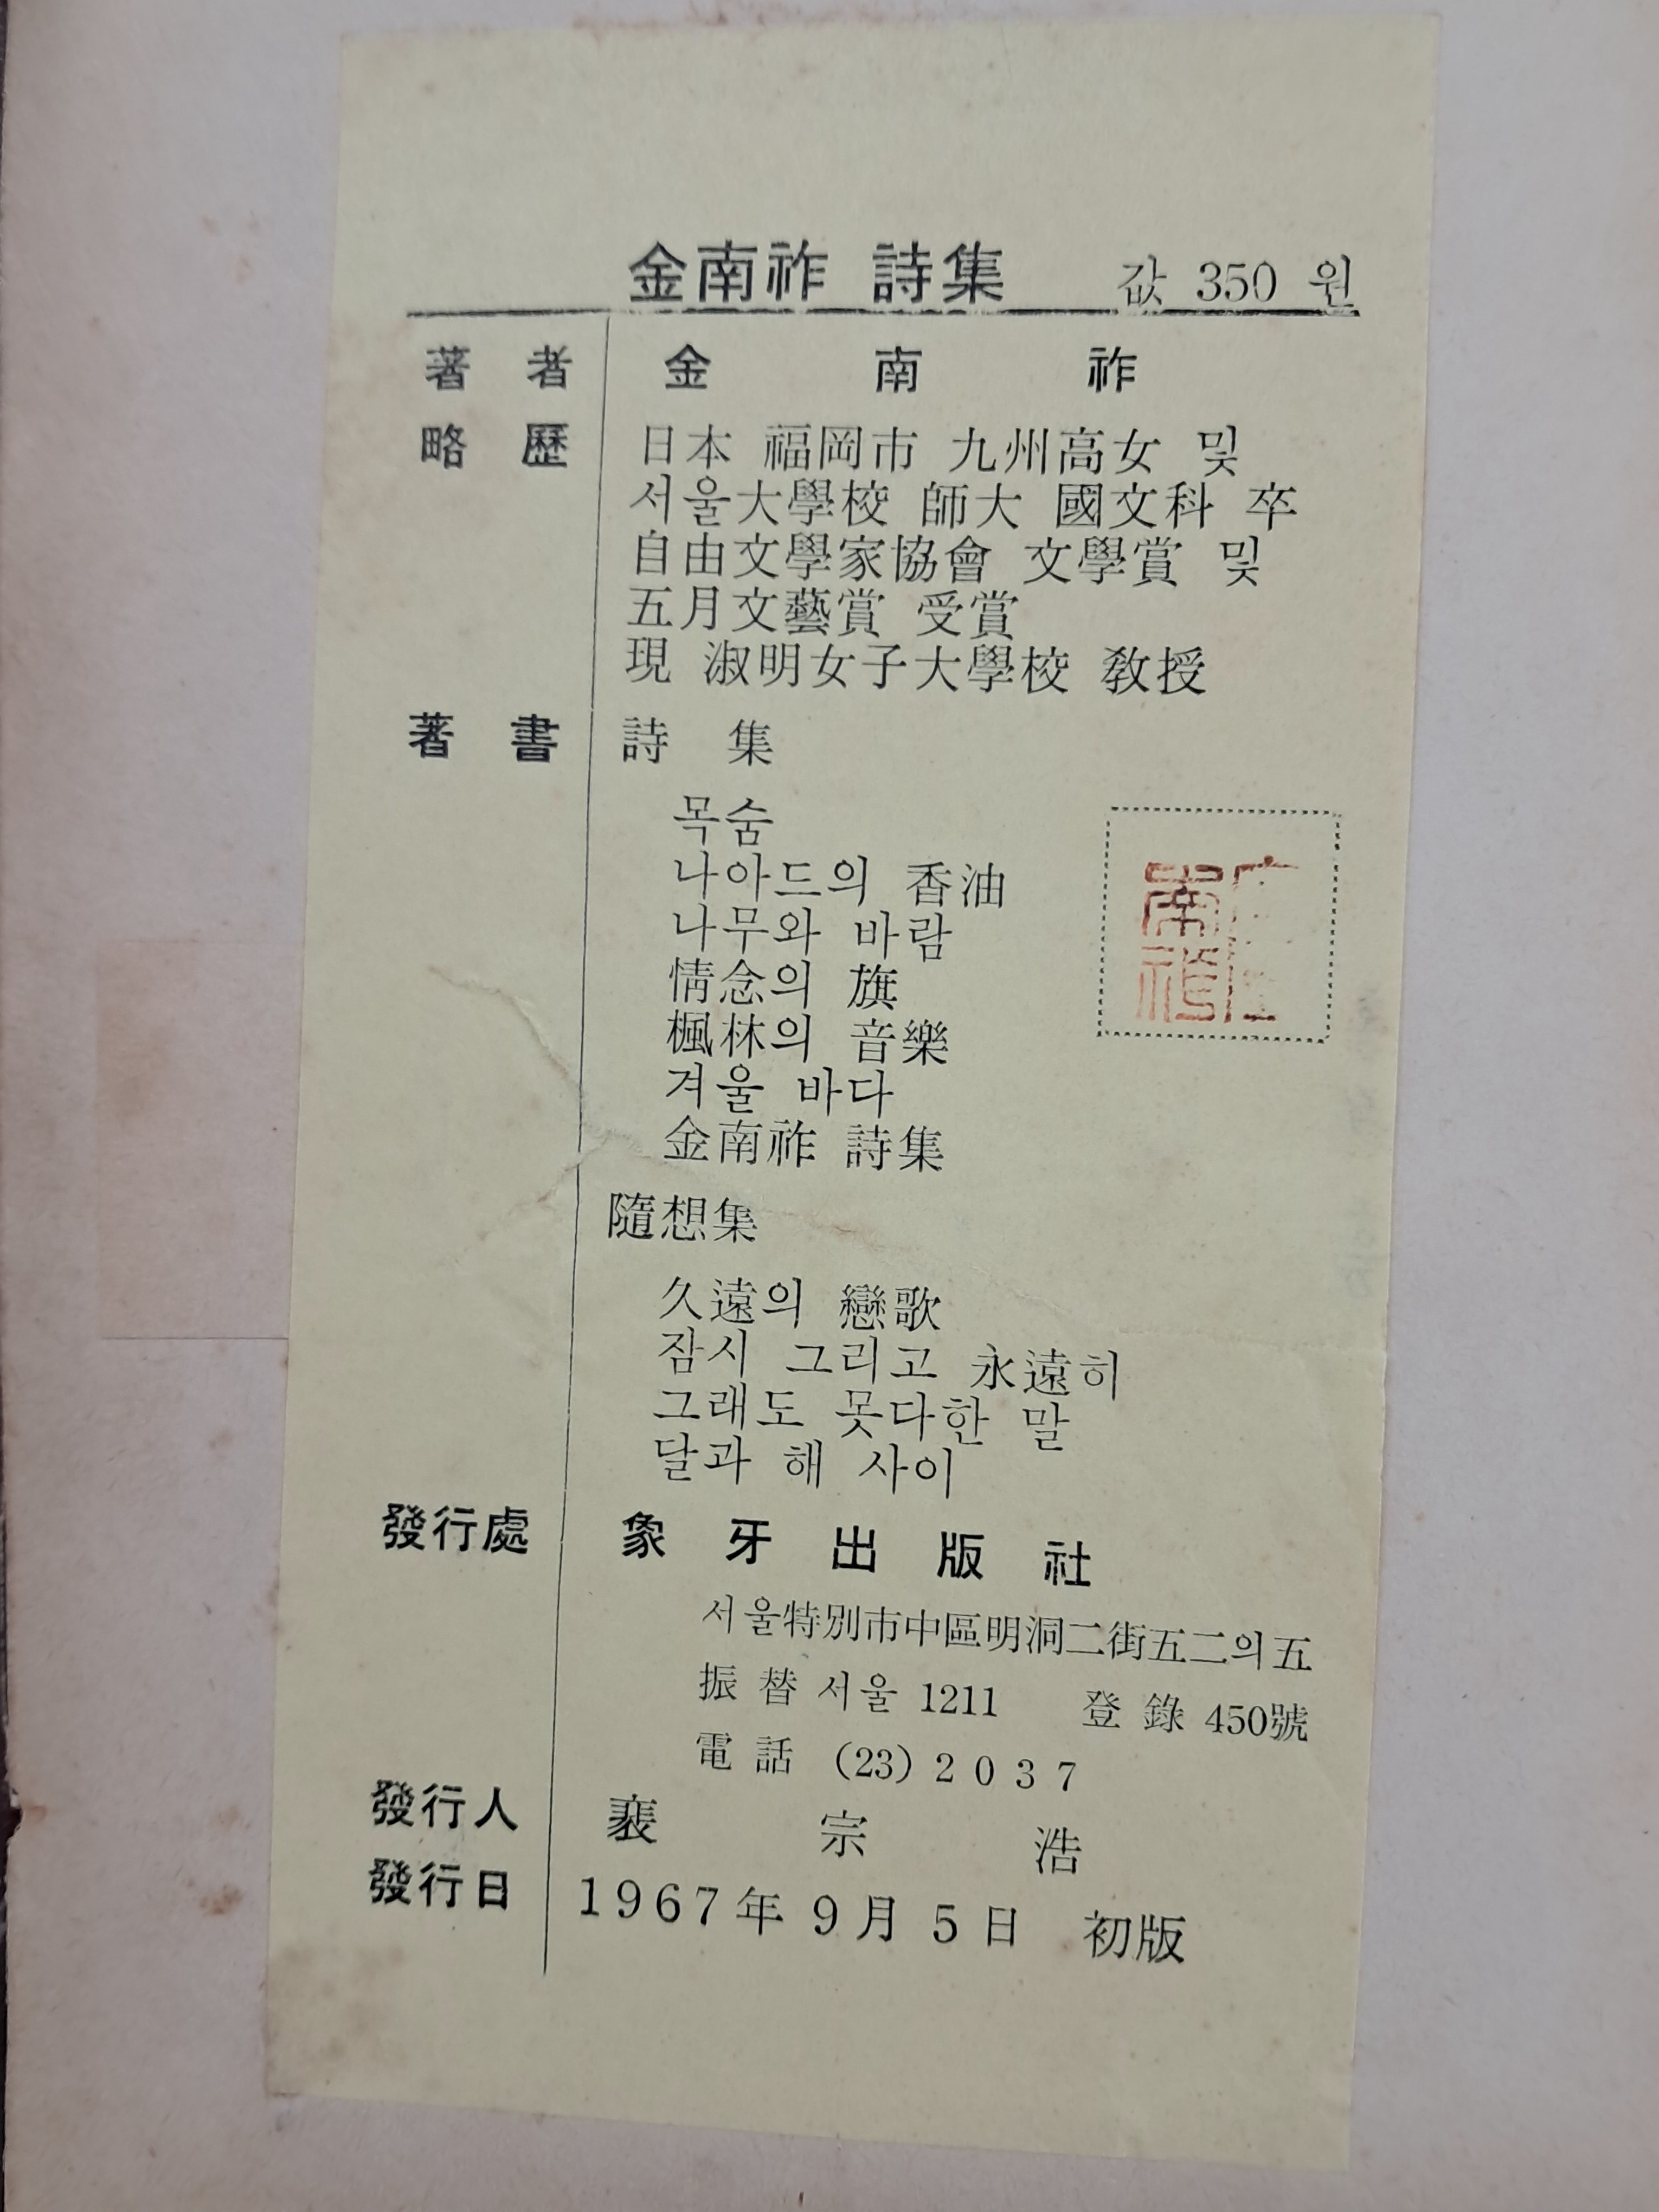 金南祚 詩集 값 350 원
著者 金南祚
略歷 日本 福岡市 九州高女 및
서울大學校 師大 國文科 卒
自由文學家協會 文學賞 및
五月文藝賞 受賞
現 淑明女子大學校 敎授
著書 詩集
목숨
나아드의 香油
나무와 바람
情念의 旗
楓林의 音樂
겨울 바다
金南祚 詩集
隨想集
久遠의 戀歌
잠시 그리고 永遠히
그래도 못다한 말
달과 해 사이
發行處 象牙出版社
서울特別市中區明洞二街五二의五
振替 서울 1211 登錄 450號
電話 (23) 2037
發行人 裵宗浩
發行日 1967年 9月 5日 初版